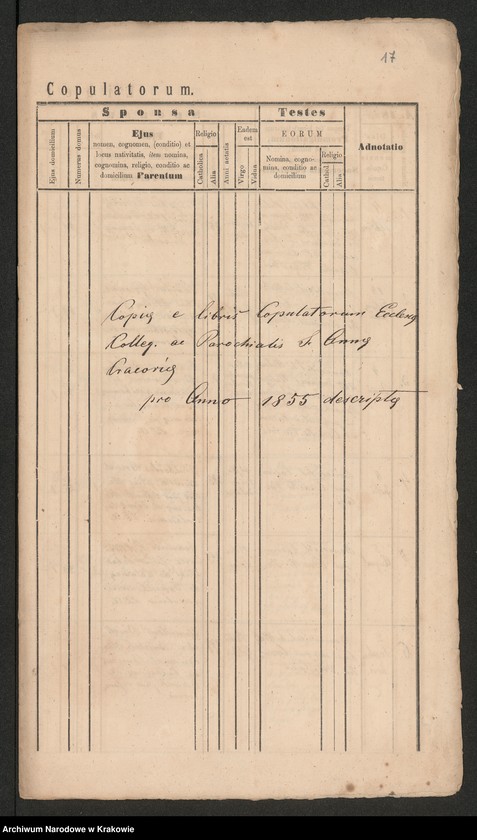 17
Copulatorum.
Sponsa
Testes
Adnotatio
Ejus domicilium
Numerus domus
Ejus
nomen, cognomen, (conditio) et
locus nativitatis, item nomina,
cognomina, religio, conditio ac
domicilium Parentum
Religio
Catholica
Alia
Anni aetatis
Eadem
est
Virgo
Vidua
EORUM
Nomina, cogno-
mina, conditio ac
domicilium
Religio
Cathol.
Alia
Copia e libris Copulatorum Ecclesiæ
Colleg. ac Parochialis S. Annæ
Cracoviæ
pro Anno 1855 descripta
Archiwum Narodowe w Krakowie